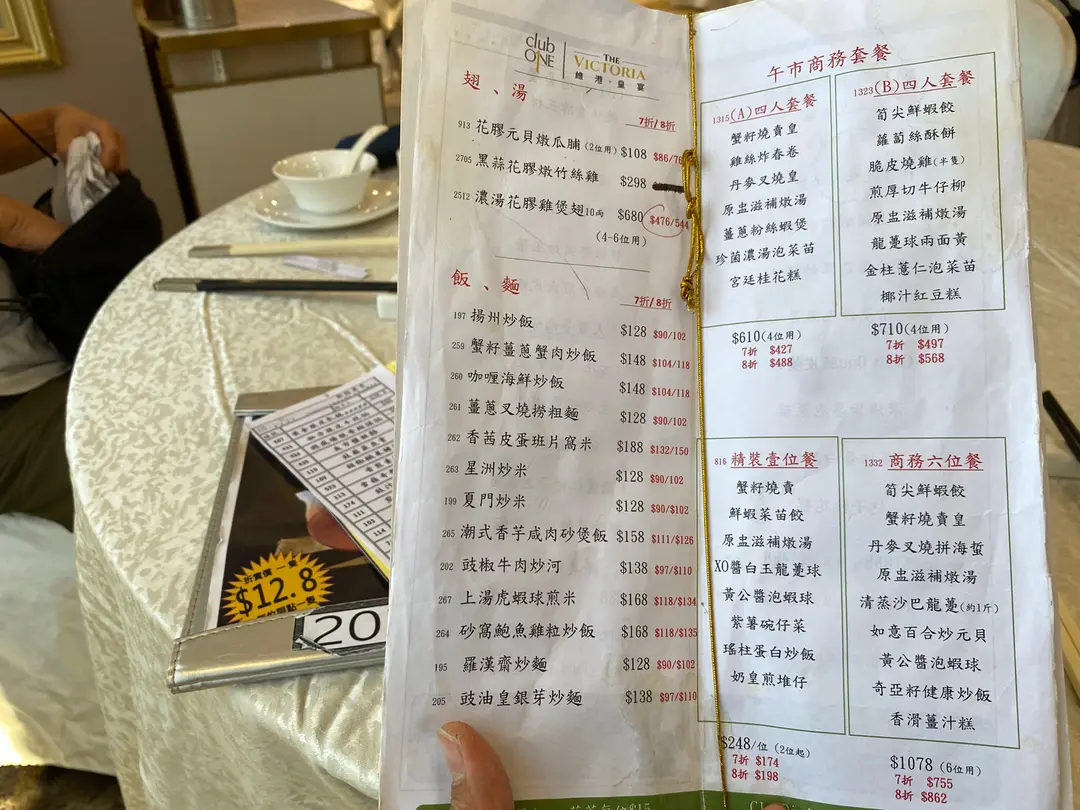 club
ONE
THE
VICTORIA
維港·皇宴
翅、湯
7折/8折
913 花膠元貝燉瓜脯(2位用) $108 $86/76
2705 黑蒜花膠燉竹絲雞 $298
2512 濃湯花膠雞煲翅10両 $680 $476/544
(4-6位用)
飯、麵
7折/8折
197 揚州炒飯 $128 $90/102
259 蟹籽薑蔥蟹肉炒飯 $148 $104/118
260 咖喱海鮮炒飯 $148 $104/118
261 薑蔥叉燒撈粗麵 $128 $90/102
262 香茜皮蛋班片窩米 $188 $132/150
263 星洲炒米 $128 $90/102
199 夏門炒米 $128 $90/$102
265 潮式香芋咸肉砂煲飯 $158 $111/$126
202 豉椒牛肉炒河 $138 $97/$110
267 上湯虎蝦球煎米 $168 $118/$134
264 砂窩鮑魚雞粒炒飯 $168 $118/$135
195 羅漢齋炒麵 $128 $90/$102
205 豉油皇銀芽炒麵 $138 $97/$110
午市商務套餐
1315(A)四人套餐
蟹籽燒賣皇
雞絲炸春卷
丹麥叉燒皇
原盅滋補燉湯
薑蔥粉絲蝦煲
珍菌濃湯泡菜苗
宮廷桂花糕
$610(4位用)
7折 $427
8折 $488
1323(B)四人套餐
筍尖鮮蝦餃
蘿蔔絲酥餅
脆皮燒雞(半隻)
煎厚切牛仔柳
原盅滋補燉湯
龍躉球兩面黃
金柱薏仁泡菜苗
椰汁紅豆糕
$710(4位用)
7折 $497
8折 $568
816 精裝壹位餐
蟹籽燒賣
鮮蝦菜苗餃
原盅滋補燉湯
XO醬白玉龍躉球
黃公醬泡蝦球
紫薯碗仔菜
瑤柱蛋白炒飯
奶皇煎堆仔
$248/位 (2位起)
7折 $174
8折 $198
1332 商務六位餐
筍尖鮮蝦餃
蟹籽燒賣皇
丹麥叉燒拼海蜇
原盅滋補燉湯
清蒸沙巴龍躉(約1斤)
如意百合炒元貝
黃公醬泡蝦球
奇亞籽健康炒飯
香滑薑汁糕
$1078 (6位用)
7折 $755
8折 $862
$12.8
20